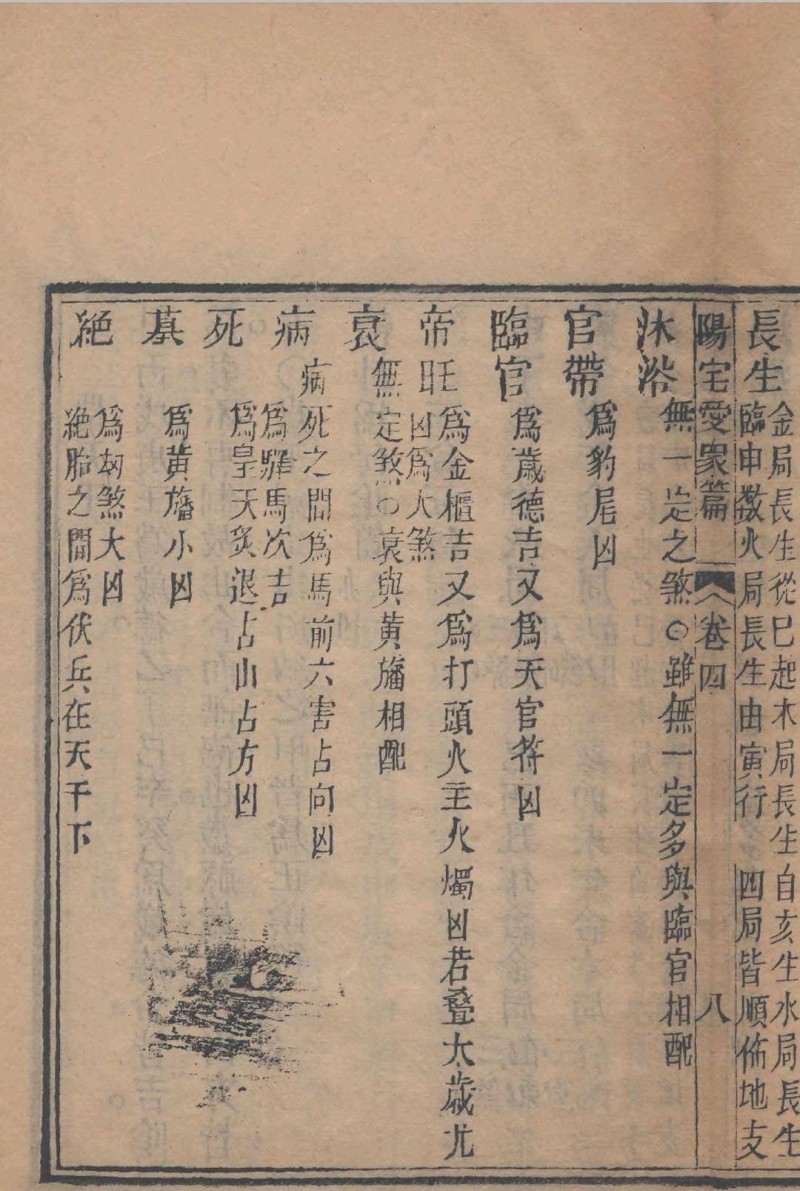 金局長生從巳起木局長生自亥生水局長生
長生臨申數火局長生由寅行 四局皆順佈地支
陽宅愛眾篇 卷四 八
沐浴無一定之煞○雖無一定多與臨官相配
官帶為豹尾凶
臨官為歲德吉又為天官符凶
帝旺為金櫃吉又為打頭火主火燭凶若疊太歲尤
凶為大煞
衰無定煞○衰與黃旛相配
病死之間為馬前六害占向凶
病為驛馬次吉
死為皇天炙退占山占方凶
墓為黃旛小凶
為刼煞大凶
絕絕胎之間為伏兵在天干下